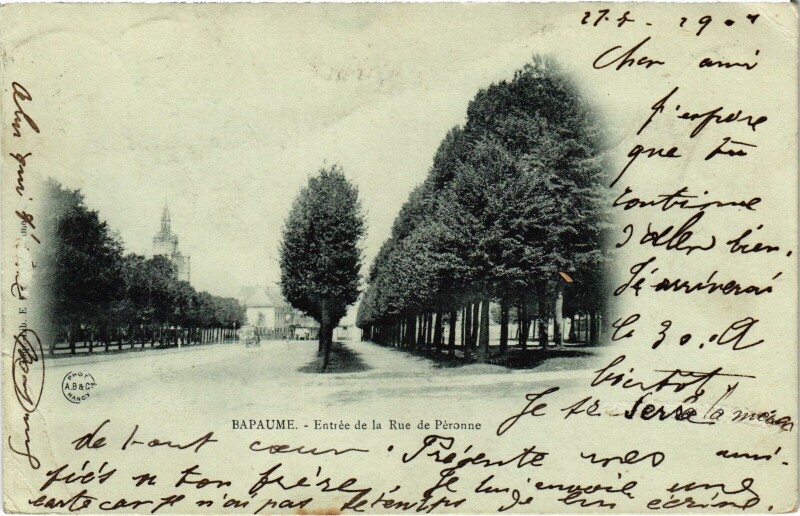 27-5-190
Cher ami
J'espère
que tu
continue
d'aller bien.
J'arriverai
le 30. A
bientôt
Je te serre la main
de tout cœur. Présente mes ami-
tiés a ton frère. Je lui envoie une
carte car je n'ai pas le temps de lui écrire.
BAPAUME. - Entrée de la Rue de Péronne
PHOT
A.B & Cie
NANCY